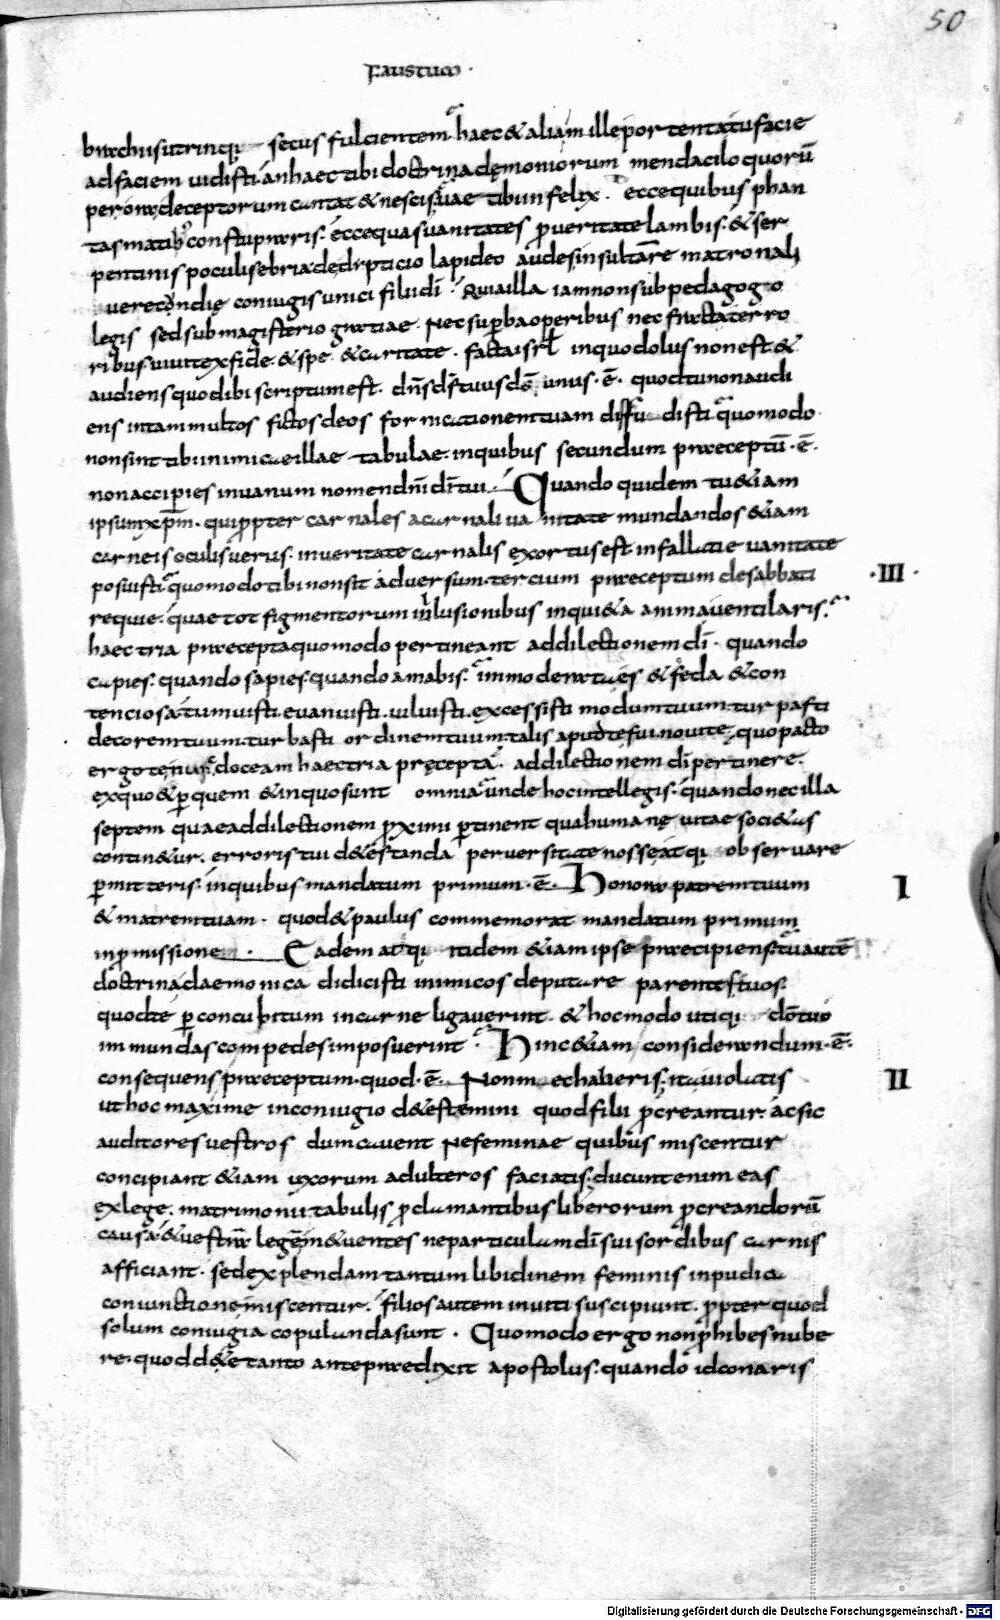 50
FAUSTUM·
brachiis utrinq; secus fulcientem haec & aliam ille portentatu facie
ad faciem uidisti an haec tibi doctrina dęmoniorum mendaciloquorū
per ora deceptorum cantat & nescis uae tibi infelix. ecce quibus phan
tasmatib; constupraris. ecce quas uanitates p ueritate lambis. & ser
pentinis poculis ebria de dt̄pticio lapideo audes insultare matronali
uerecundię coniugis unici filii dī. Quia illa iam non sub pedagogo
legis sed sub magisterio gratiae. Nec superba operibus nec fracta terro
ribus uiuit ex fide. & spe. & caritate. facta isrl̄ in quo dolus non est &
audiens quod ibi scriptum est. dn̄s ds̄ tuus ds̄ unus. ē. quod tu non audi
ens in tam multos fictos deos fornicationem tuam diffudisti quomodo
non sint tibi inimicae illae tabulae. in quibus secundum praeceptū. ē.
non accipies in uanum nomen dn̄i dī tui. Quando quidem tu &iam
ipsum xp̄m. qui ppter carnales a carnali uanitate mundandos &iam
carneis oculis uerus. in ueritate carnalis exortus est in fallacie uanitate
posuisti quomodo tibi non sit aduersum tercium praeceptum de sabbati
·III·
requie. quae tot figmentorum inlusionibus inqui&a anima uentilaris.
haec tria praecepta quomodo pertineant ad dilectionem dī. quando
capies. quando sapies. quando amabis. immoderata es & feda & con
tenciosa. tumuisti. euanuisti. uiluisti. excessisti modum tuum. turpasti
decorem tuum. turbasti ordinem tuum. talis apud te fui. noui te. quo pacto
ergo te nunc doceam haec tria pręcepta. ad dilectionem dī pertinere.
ex quo & p quem & in quo sunt omnia unde hoc intellegis. quando nec illa
septem quae ad dilectionem pximi ptinent qua humanę uitae soci&as
contin&ur. erroris tui d&estanda peruersitate nosse atq; obseruare
pmitteris. in quibus mandatum primum. ē. Honora patrem tuum
I
& matrem tuam. quod & paulus commemorat mandatum primum
in pmissione. Eadem atq; itidem &iam ipse praecipiens. tu autē
doctrina daemonica didicisti inimicos deputare parentes tuos.
quod te p concubitum in carne ligauerint. & hoc modo utiq; dō tuo
immundas compedes imposuerint. Hinc &iam considerandum. ē.
consequens praeceptum. quod. ē. Non moechaberis. ita uiolatis
II
ut hoc maxime in coniugio d&estemini quod filii pcreantur. ac sic
auditores uestros dum cauent Ne feminae quibus miscentur
concipiant &iam uxorum adulteros faciatis. ducunt enim eas
ex lege. matrimonii tabulis pclamantibus liberorum pcreandorū
causa. & uestra lege m&uentes ne particulam dī sui sordibus carnis
afficiant. sed explendam tantum libidinem feminis inpudica
coniunctione miscentur. filios autem inuiti suscipiunt. ppter quod
solum coniugia copulanda sunt. Quomodo ergo non phibes nube
re. quod de te tanto ante praedixit apostolus. quando id conaris
Digitalisierung gefördert durch die Deutsche Forschungsgemeinschaft - DFG